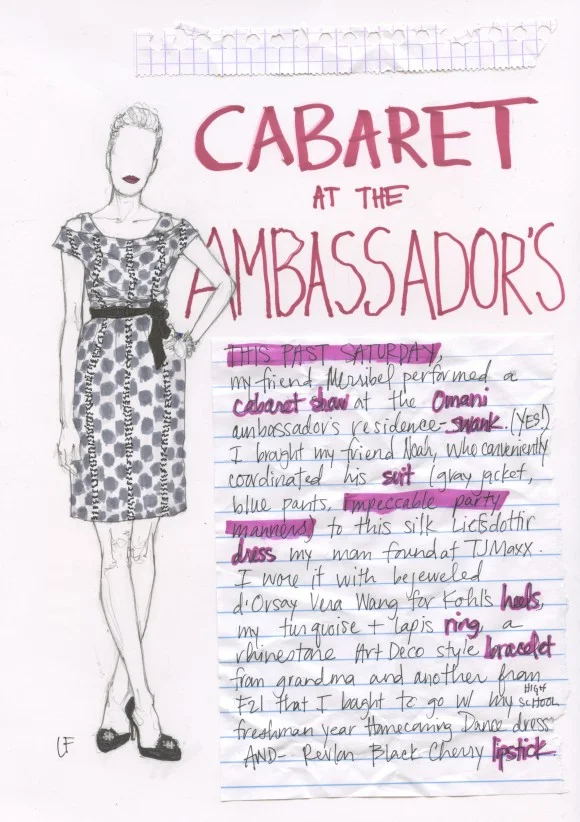 CABARET
AT THE
AMBASSADOR'S
THIS PAST SATURDAY,
my friend Merribel performed a
cabaret show at the Omani
ambassador's residence- swank. (YES!)
I brought my friend Noah, who conveniently
coordinated his suit (gray jacket,
blue pants, impeccable party
manners) to this silk Liefsdottir
dress my mom found at TJMaxx.
I wore it with bejeweled
d'Orsay Vera Wang for Kohl's heels,
my turquoise + lapis ring, a
rhinestone Art Deco style bracelet
from grandma and another from
F21 that I bought to go w/ my HIGH SCHOOL
freshman year Homecoming Dance dress
AND-- Revlon Black Cherry lipstick.
LF